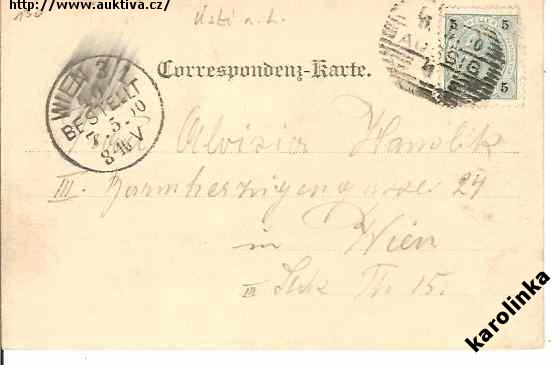 http://www.auktiva.cz/
130
Ústí n. L.
5 5
AUSSIG
5 5
WIEN 3/1
BESTELLT
Correspondenz-Karte.
Aloisia Hanolik
III. Barmherzigengasse 24
in Wien
III Stck Th. 15.
karolinka